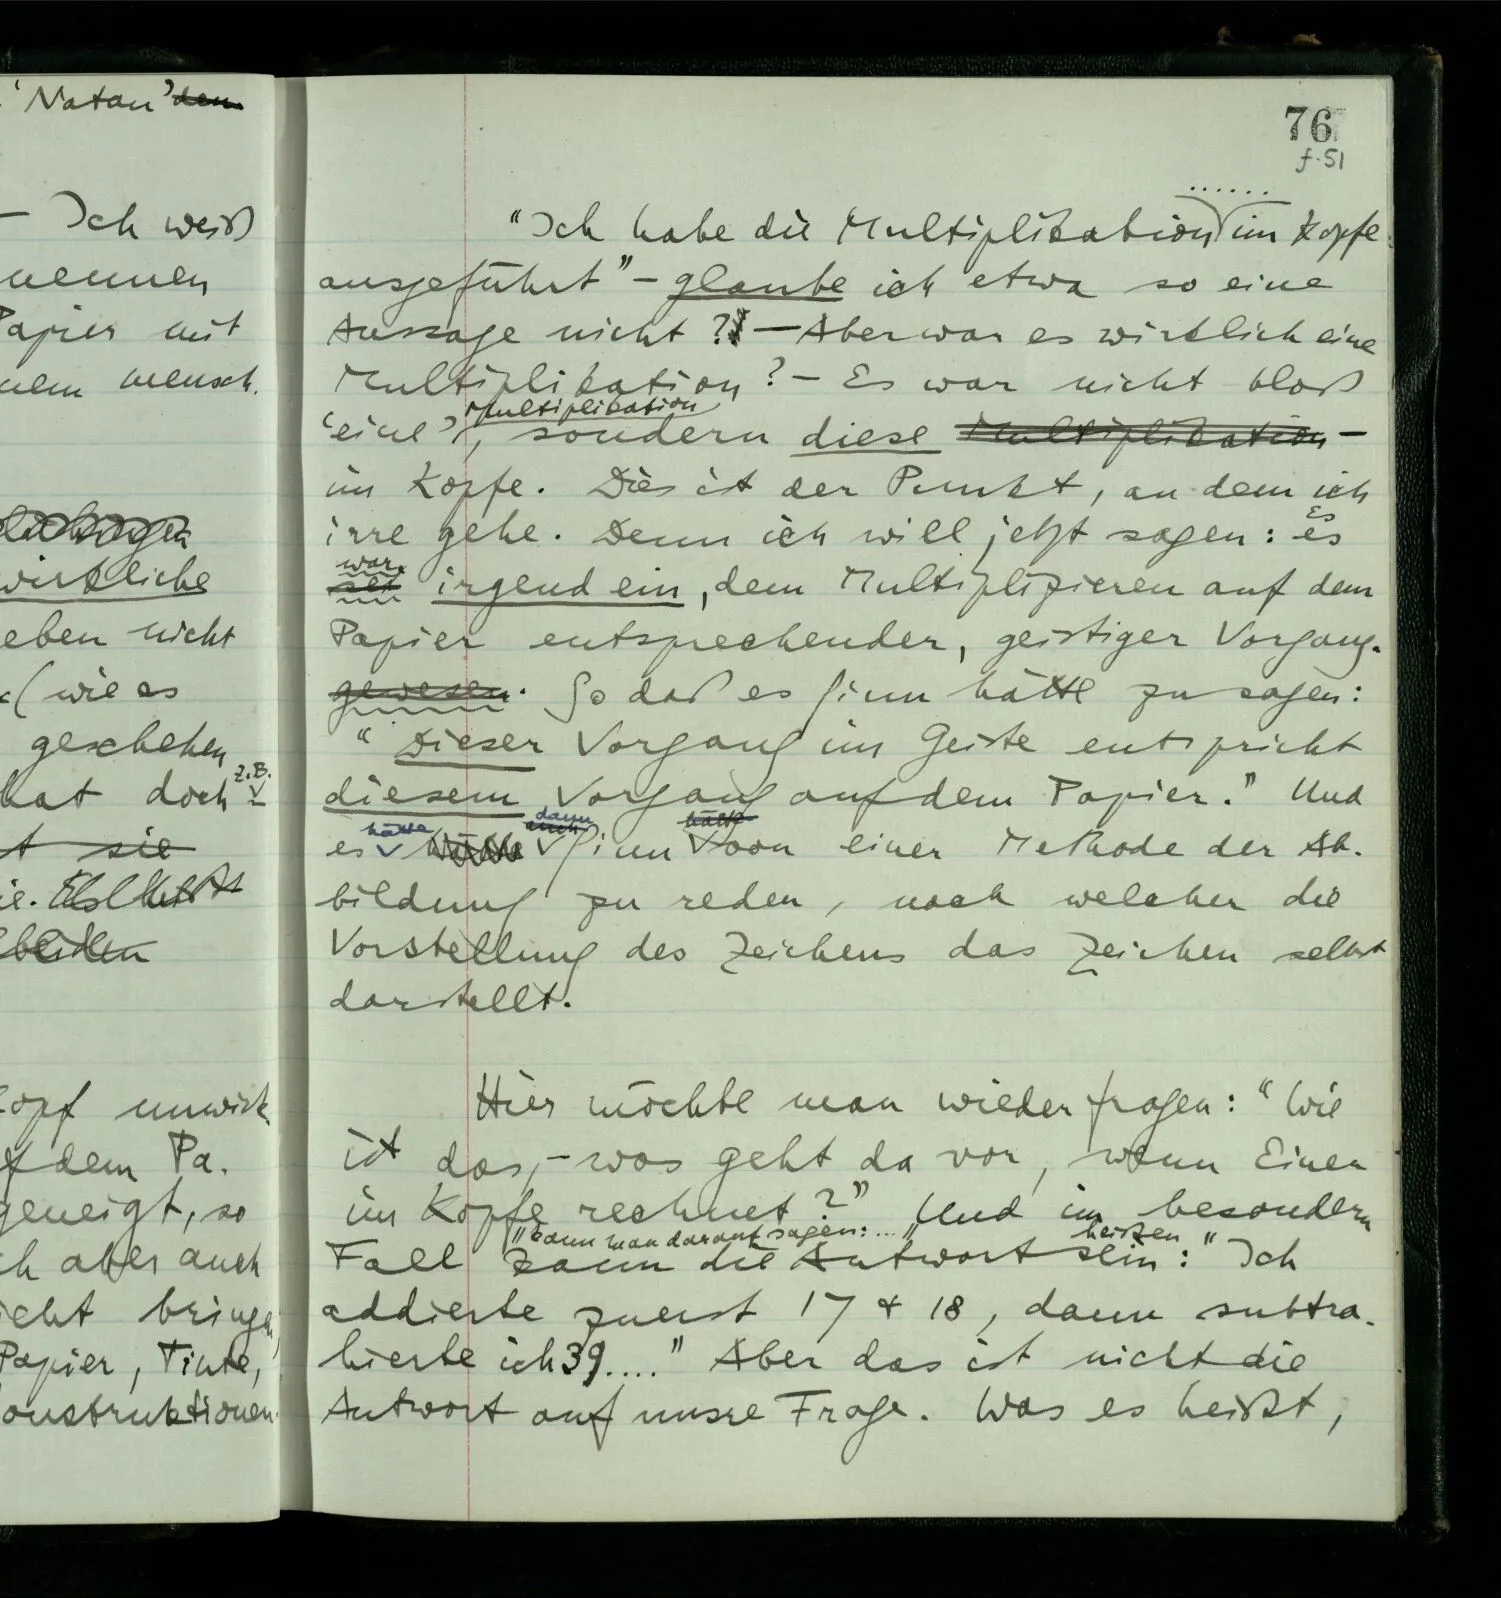 'Natan' den
– Ich weiß
nennen
Papier mit
nem mensch.
wirkliche
eben nicht
(wie es
geschehen
z.B.
hat doch
t sie
opf unwirk
f dem Pa.
geneigt, so
ch aber auch
icht bringen
Papier, Tinte,
onstruktionen
76
f. 51
......
"Ich habe die Multiplikation im Kopfe
ausgeführt" – glaube ich etwa so eine
Aussage nicht? – Aber war es wirklich eine
Multiplikation? – Es war nicht bloß
Multiplikation
'eine', sondern diese Multiplikation –
im Kopfe. Dies ist der Punkt, an dem ich
irre gehe. Denn ich will jetzt sagen: es
Es
war
sei irgend ein, dem Multiplizieren auf dem
Papier entsprechender, geistiger Vorgang.
gewesen. So daß es Sinn hätte zu sagen:
"Dieser Vorgang im Geiste entspricht
diesem Vorgang auf dem Papier." Und
hätte dann auch hätte
es Sinn von einer Methode der Ab-
bildung zu reden, nach welcher die
Vorstellung des Zeichens das Zeichen selbst
darstellt.
Hier möchte man wieder fragen: "Wie
ist das, – was geht da vor, wenn Einer
im Kopfe rechnet?" Und im besondern
"kann man darauf sagen: ..." heißen
Fall kann die Antwort sein: "Ich
addierte zuerst 17 & 18, dann subtra-
hierte ich 39...." Aber das ist nicht die
Antwort auf unsre Frage. Was es heißt,